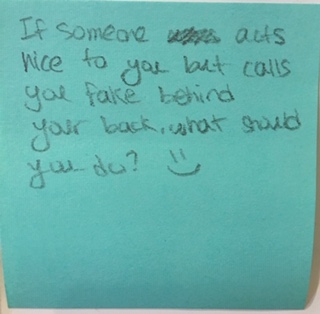 If someone acts
nice to you but calls
you fake behind
your back, what should
you do?